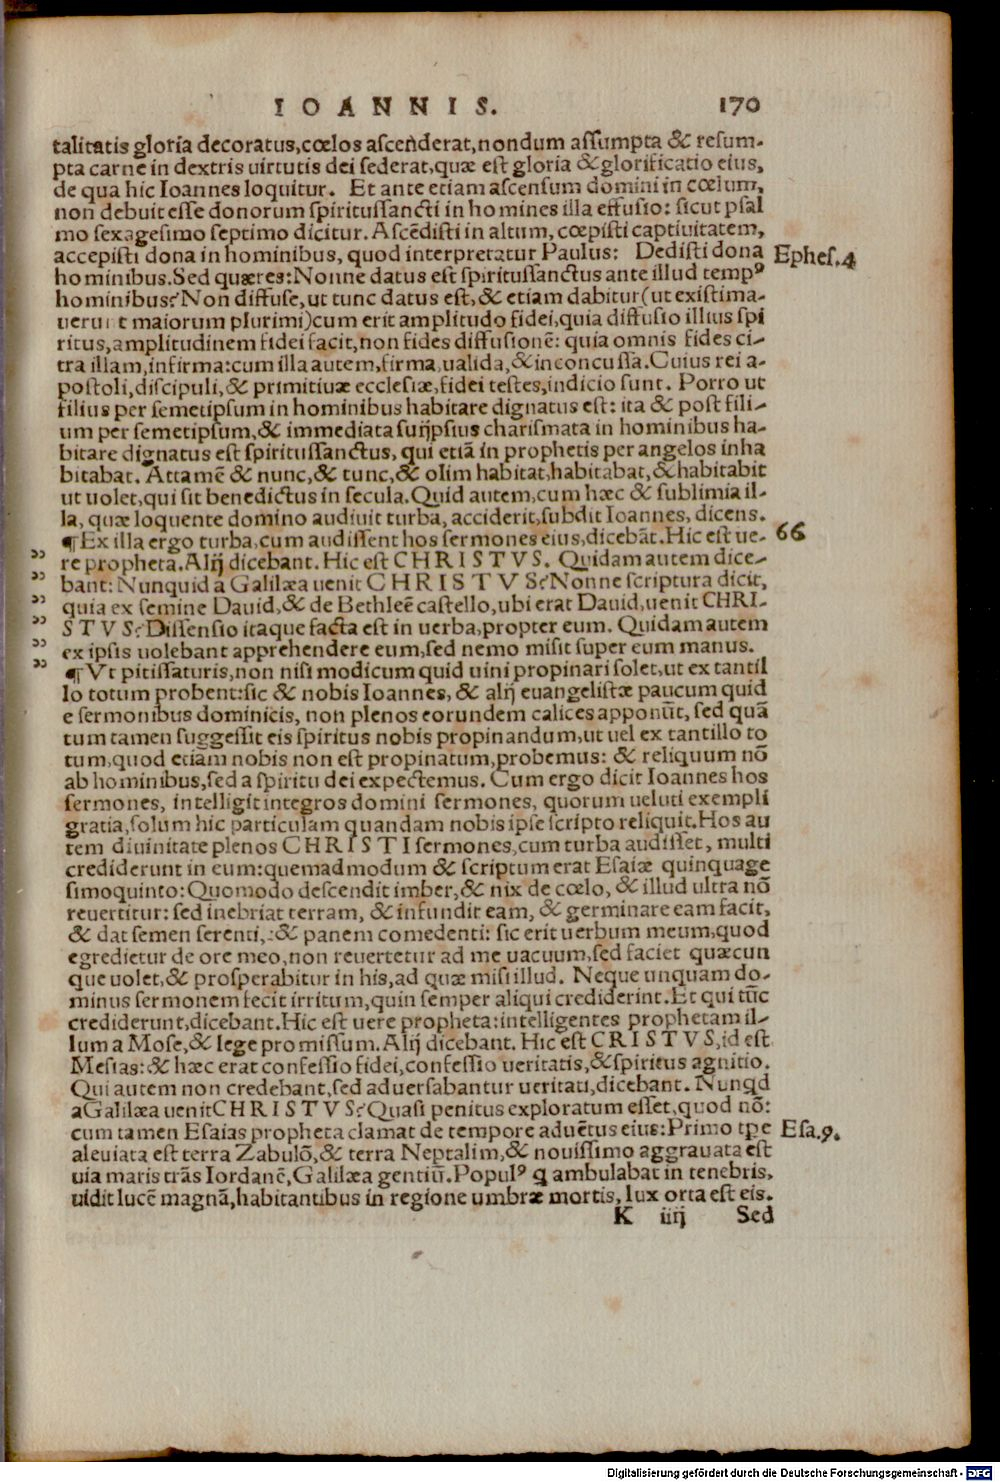 IOANNIS. 170
talitatis gloria decoratus,cœlos ascenderat,nondum assumpta & resum-
pta carne in dextris uirtutis dei sederat,quæ est gloria & glorificatio eius,
de qua hic Ioannes loquitur. Et ante etiam ascensum domini in cœlum,
non debuit esse donorum spiritussancti in homines illa effusio: sicut psal
mo sexagesimo septimo dicitur. Ascēdisti in altum, cœpisti captiuitatem,
accepisti dona in hominibus, quod interpretatur Paulus: Dedisti dona Ephes.4
hominibus.Sed quæres:Nonne datus est spiritussanctus ante illud tempꝰ
hominibus?Non diffuse,ut tunc datus est,& etiam dabitur(ut existima-
uerunt maiorum plurimi)cum erit amplitudo fidei,quia diffusio illius spi
ritus,amplitudinem fidei facit,non fides diffusionē: quia omnis fides ci-
tra illam,infirma:cum illa autem,firma,ualida,&inconcussa.Cuius rei a-
postoli,discipuli,& primitiuæ ecclesiæ,fidei testes,indicio sunt. Porro ut
filius per semetipsum in hominibus habitare dignatus est: ita & post fili-
um per semetipsum,& immediata suijpsius charismata in hominibus ha-
bitare dignatus est spiritussanctus, qui etiā in prophetis per angelos inha
bitabat. Attamē & nunc,& tunc,& olim habitat,habitabat,& habitabit
ut uolet,qui sit benedictus in secula.Quid autem,cum hæc & sublimia il-
la, quæ loquente domino audiuit turba, acciderit,subdit Ioannes, dicens.
¶Ex illa ergo turba,cum audissent hos sermones eius,dicebāt.Hic est ue- 66
re propheta.Alij dicebant. Hic est CHRISTVS. Quidam autem dice-
bant: Nunquid a Galilæa uenit CHRISTVS?Nonne scriptura dicit,
quia ex semine Dauid,& de Bethleē castello,ubi erat Dauid,uenit CHRI-
STVS?Dissensio itaque facta est in uerba,propter eum. Quidam autem
ex ipsis uolebant apprehendere eum,sed nemo misit super eum manus.
¶Vt pitissaturis,non nisi modicum quid uini propinari solet,ut ex tantil
lo totum probent:sic & nobis Ioannes, & alij euangelistæ paucum quid
e sermonibus dominicis, non plenos eorundem calices apponūt, sed quā
tum tamen suggessit eis spiritus nobis propinandum,ut uel ex tantillo to
tum,quod etiam nobis non est propinatum,probemus: & reliquum nō
ab hominibus,sed a spiritu dei expectemus. Cum ergo dicit Ioannes hos
sermones, intelligit integros domini sermones, quorum ueluti exempli
gratia,solum hic particulam quandam nobis ipse scripto reliquit.Hos au
tem diuinitate plenos CHRISTI sermones,cum turba audisset, multi
crediderunt in eum:quemadmodum & scriptum erat Esaiæ quinquage
simoquinto:Quomodo descendit imber,& nix de cœlo, & illud ultra nō
reuertitur: sed inebriat terram, & infundit eam, & germinare eam facit,
& dat semen serenti,:& panem comedenti: sic erit uerbum meum,quod
egredietur de ore meo,non reuertetur ad me uacuum,sed faciet quæcun
que uolet,& prosperabitur in his,ad quæ misi illud. Neque unquam do-
minus sermonem fecit irritum,quin semper aliqui crediderint.Et qui tūc
crediderunt,dicebant.Hic est uere propheta:intelligentes prophetam il-
lum a Mose,& lege promissum.Alij dicebant. Hic est CRISTVS,id est
Mesias:& hæc erat confessio fidei,confessio ueritatis,&spiritus agnitio.
Qui autem non credebant,sed aduersabantur ueritati,dicebant. Nunqd
aGalilæa uenitCHRISTVS?Quasi penitus exploratum esset,quod nō:
cum tamen Esaias propheta clamat de tempore aduētus eius:Primo tpe Esa.9.
aleuiata est terra Zabulō,& terra Neptalim,& nouissimo aggrauata est
uia maris trās Iordanē,Galilæa gentiū.Populꝰ q ambulabat in tenebris,
uidit lucē magnā,habitantibus in regione umbræ mortis, lux orta est eis.
K iiij Sed
Digitalisierung gefördert durch die Deutsche Forschungsgemeinschaft - DFG